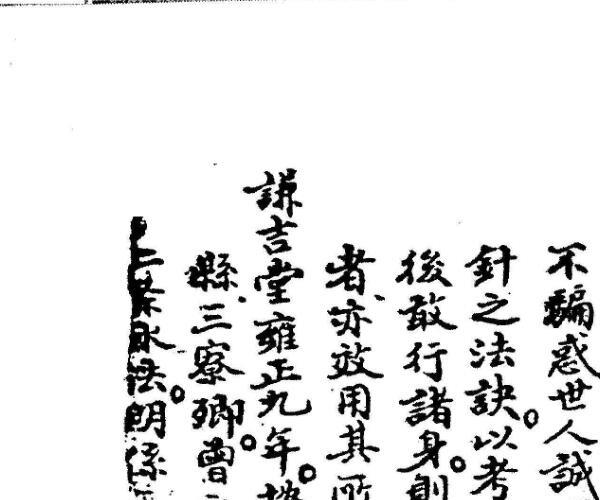 不騙惑世人誠
針之法訣。以考
後敢行諸身。則
者亦效用其所
謙吉堂雍正九年。
縣三寮鄉。曾
二祭永法。明係